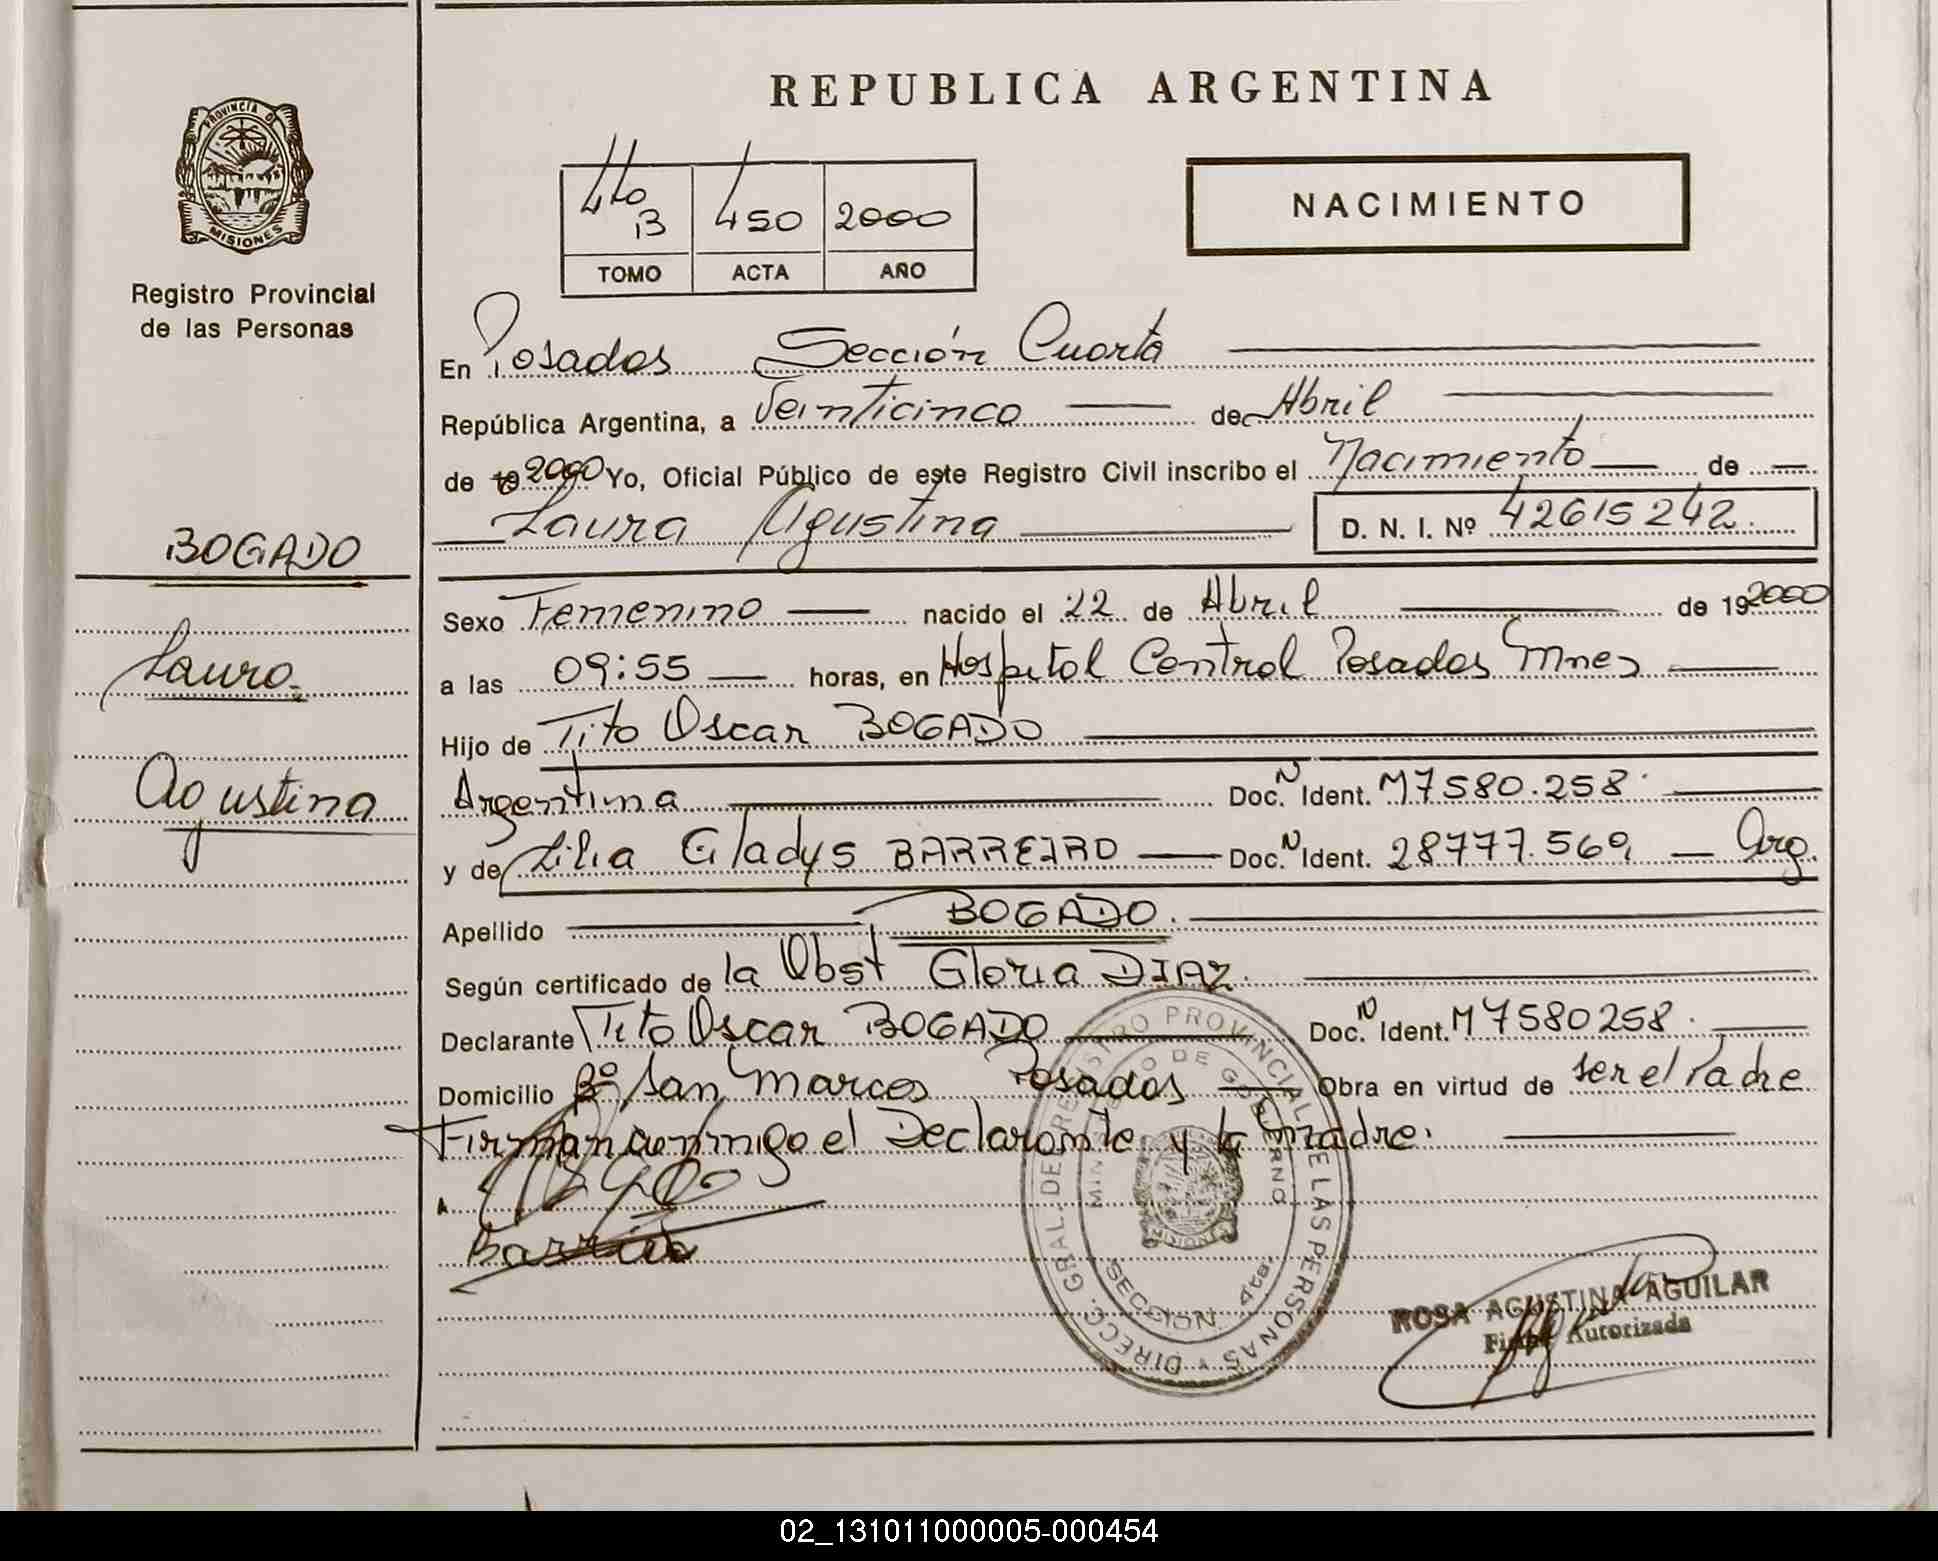 PROVINCIA D
MISIONES
Registro Provincial
de las Personas
BOGADO
Laura
Agustina
REPUBLICA ARGENTINA
NACIMIENTO
4to B 450 2000
TOMO ACTA AÑO
En Posadas Sección Cuarta
República Argentina, a Veinticinco de Abril
de 19 2000 Yo, Oficial Público de este Registro Civil inscribo el Nacimiento de
Laura Agustina D. N. I. Nº 42615242.
Sexo Femenino nacido el 22 de Abril de 19 2000
a las 09:55 horas, en Hospital Central Posadas Mnes
Hijo de Tito Oscar BOGADO
Argentina Doc. N Ident. M7580.258.
y de Lilia Gladys BARREIRO Doc. N Ident. 28777.569, Arg.
Apellido BOGADO.
Según certificado de la Obst Gloria DIAZ.
Declarante Tito Oscar BOGADO Doc. N Ident. M7580258.
Domicilio Bº San Marcos Posadas Obra en virtud de ser el Padre
Firman conmigo el Declarante y la madre.
DIRECC. GRAL. DE REGISTRO PROVINCIAL DE LAS PERSONAS
MINISTERIO DE GOBIERNO
SECCION 4ta.
MISIONES
ROSA AGUSTINA AGUILAR
Firma Autorizada
02_131011000005-000454